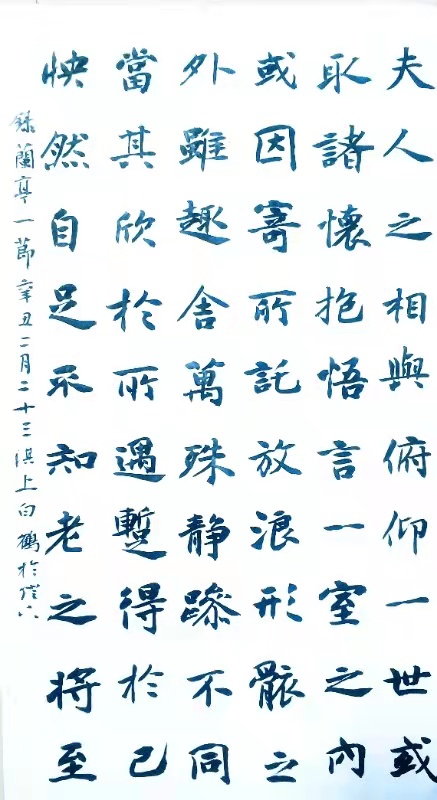 夫人之相與俯仰一世或
取諸懷抱悟言一室之內
或因寄所託放浪形骸之
外雖趣舍萬殊静躁不同
當其欣於所遇蹔得於己
怏然自足不知老之將至
錄蘭亭一節辛丑二月二十三淇上白鶴於